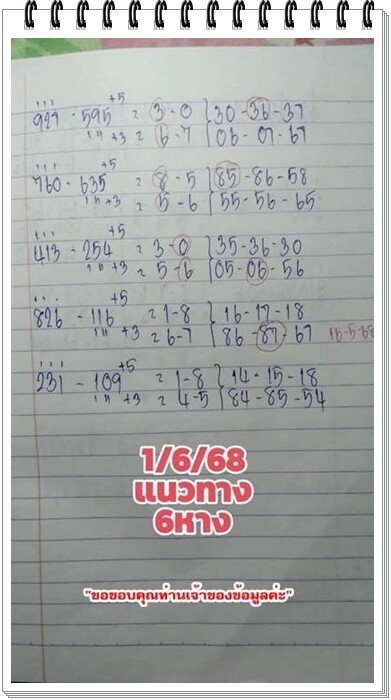 +5
927 - 595 = 3 - 0 } 30 - 36 - 37
+3 = 6 - 7 | 06 - 07 - 67
+5
760 - 635 = 8 - 5 } 85 - 86 - 58
+3 = 5 - 6 | 55 - 56 - 65
+5
413 - 254 = 3 - 0 } 35 - 36 - 30
+3 = 5 - 6 | 05 - 06 - 56
+5
826 - 116 = 1 - 8 } 16 - 17 - 18
+3 = 6 - 7 | 86 - 87 - 67 16-5-68
+5
231 - 109 = 1 - 8 } 14 - 15 - 18
+3 = 4 - 5 | 84 - 85 - 54
1/6/68
แนวทาง
6หาง
"ขอขอบคุณท่านเจ้าของข้อมูลค่ะ"